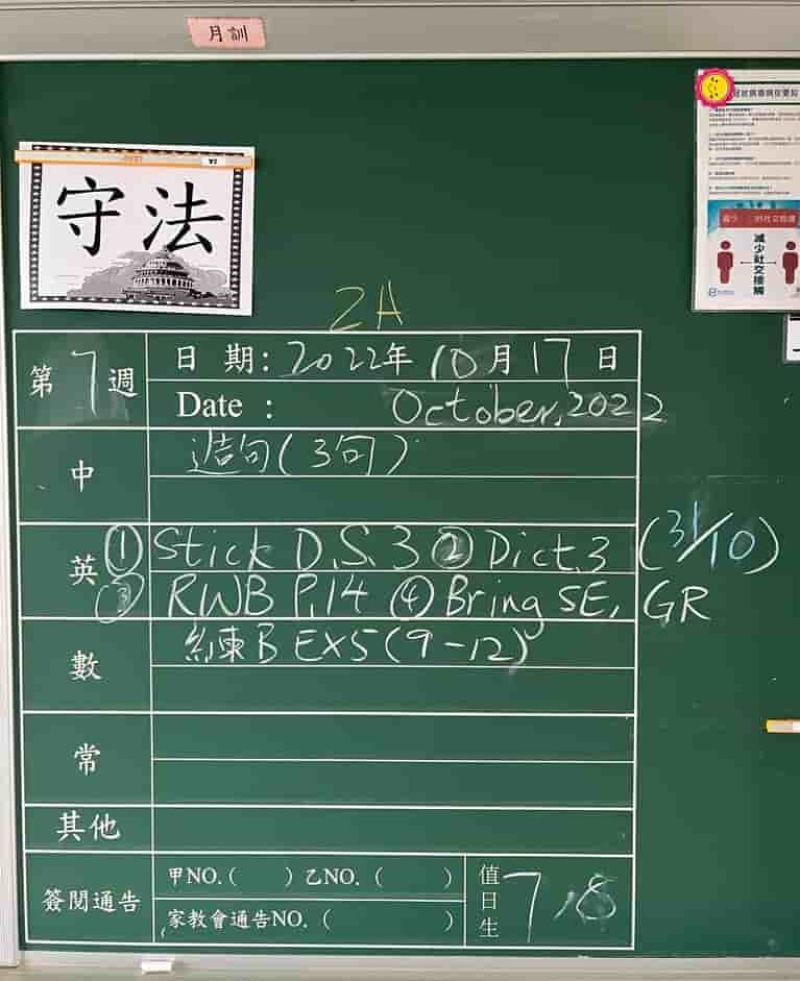 月訓
守法
減少社交接觸
2A
第7週
日期:2022年10月17日
Date : October, 2022
中
造句(3句)
英
①Stick D.S.3 ②Dict.3 (31/10)
③ RWB P.14 ④Bring SE, GR
數
練B EX5(9-12)
常
其他
簽閱通告
甲NO.( ) 乙NO.( )
家教會通告NO.( )
值日生 7,8